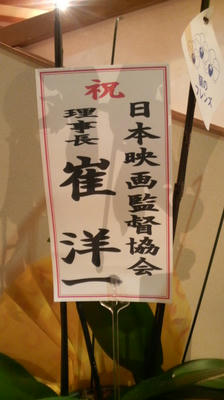 祝
日本映画監督協会
理事長 崔洋一